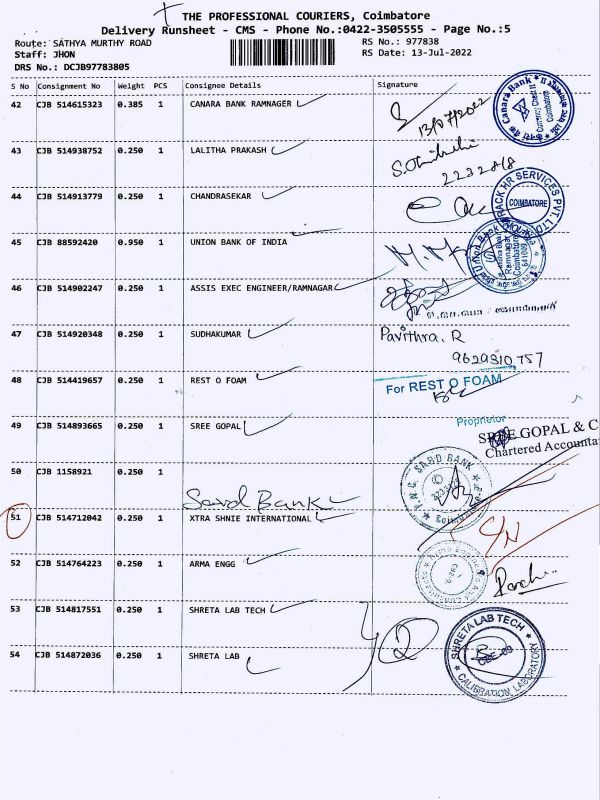 THE PROFESSIONAL COURIERS, Coimbatore
Delivery Runsheet - CMS - Phone No.:0422-3505555 - Page No.:5
Route: SATHYA MURTHY ROAD
RS No.: 977838
Staff: JHON
RS Date: 13-Jul-2022
DRS No.: DCJB97783805
S No Consignment No Weight PCS Consignee Details Signature
42 CJB 514615323 0.385 1 CANARA BANK RAMNAGER
13/07/2022
Canara Bank
Currency Chest II
Coimbatore
43 CJB 514938752 0.250 1 LALITHA PRAKASH
2232818
44 CJB 514913779 0.250 1 CHANDRASEKAR
HR SERVICES PVT. LTD
COIMBATORE
45 CJB 88592420 0.950 1 UNION BANK OF INDIA
Union Bank
Ramnagar
Coimbatore
641009
46 CJB 514902247 0.250 1 ASSIS EXEC ENGINEER/RAMNAGAR
47 CJB 514920348 0.250 1 SUDHAKUMAR Pavithra. R
9629310757
48 CJB 514419657 0.250 1 REST O FOAM For REST O FOAM
Proprietor
49 CJB 514893665 0.250 1 SREE GOPAL
SREE GOPAL & C
Chartered Accounta
50 CJB 1158921 0.250 1
Sard Bank
SARD BANK
51 CJB 514712042 0.250 1 XTRA SHNIE INTERNATIONAL
52 CJB 514764223 0.250 1 ARMA ENGG
53 CJB 514817551 0.250 1 SHRETA LAB TECH
SHRETA LAB TECH
CALIBRATION LABORATORY
CBE-09
54 CJB 514872036 0.250 1 SHRETA LAB